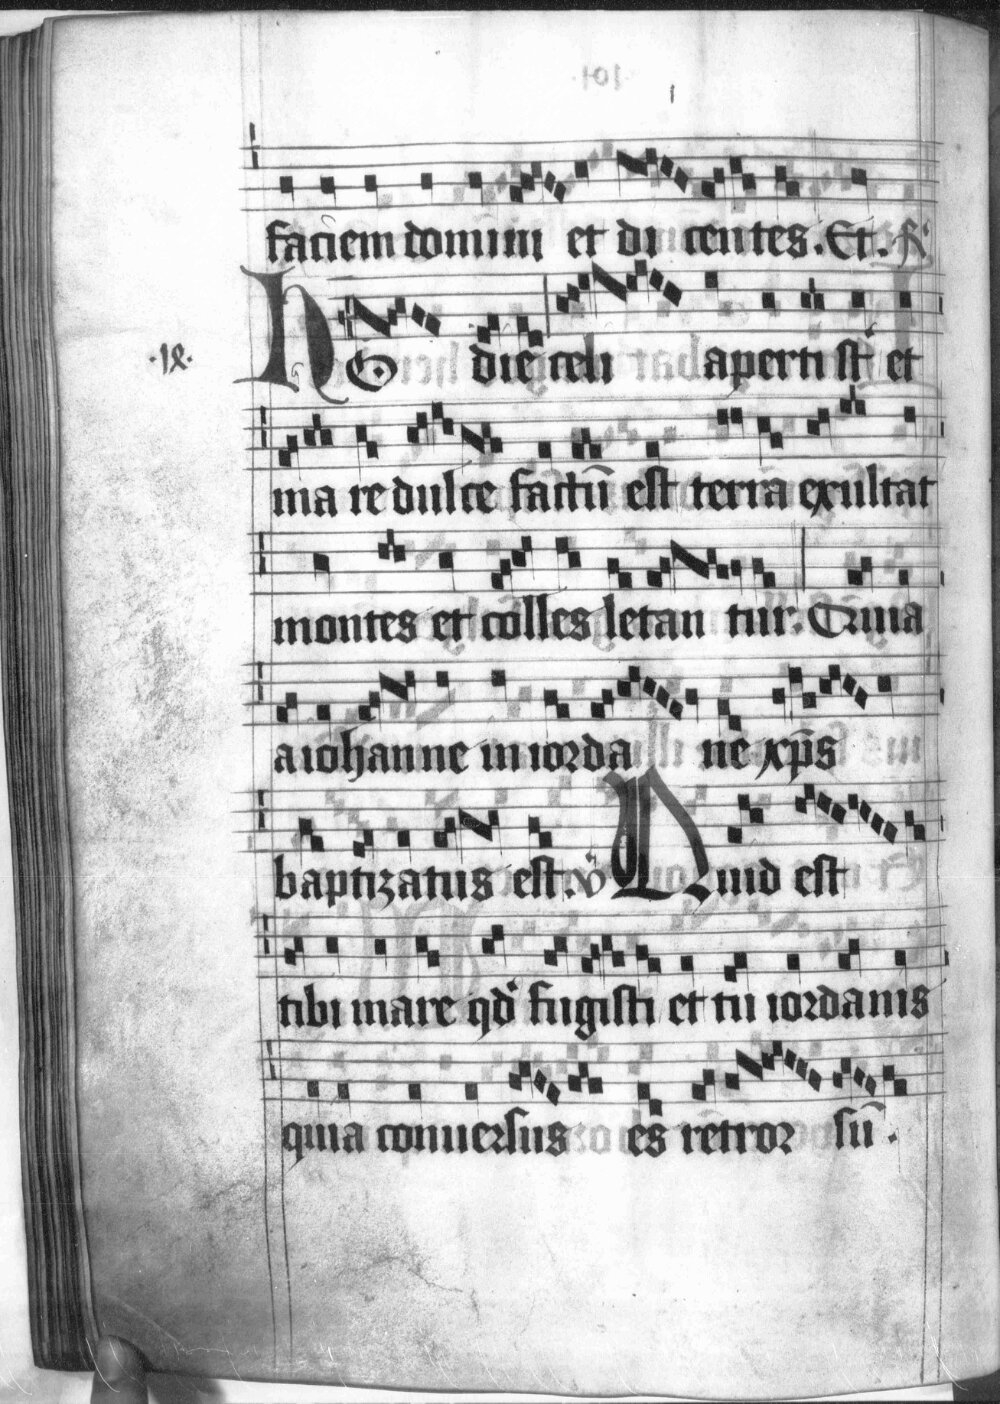 faciem domini et di centes. Et. R
·IX· HO die celi aperti st̄ et
ma re dulce factū est terra exultat
montes et colles letan tur. Quia
a iohanne in iorda ne xp̄s
baptizatus est. V Quid est
tibi mare qd fugisti et tu iordanis
quia conuersus es retror sū.